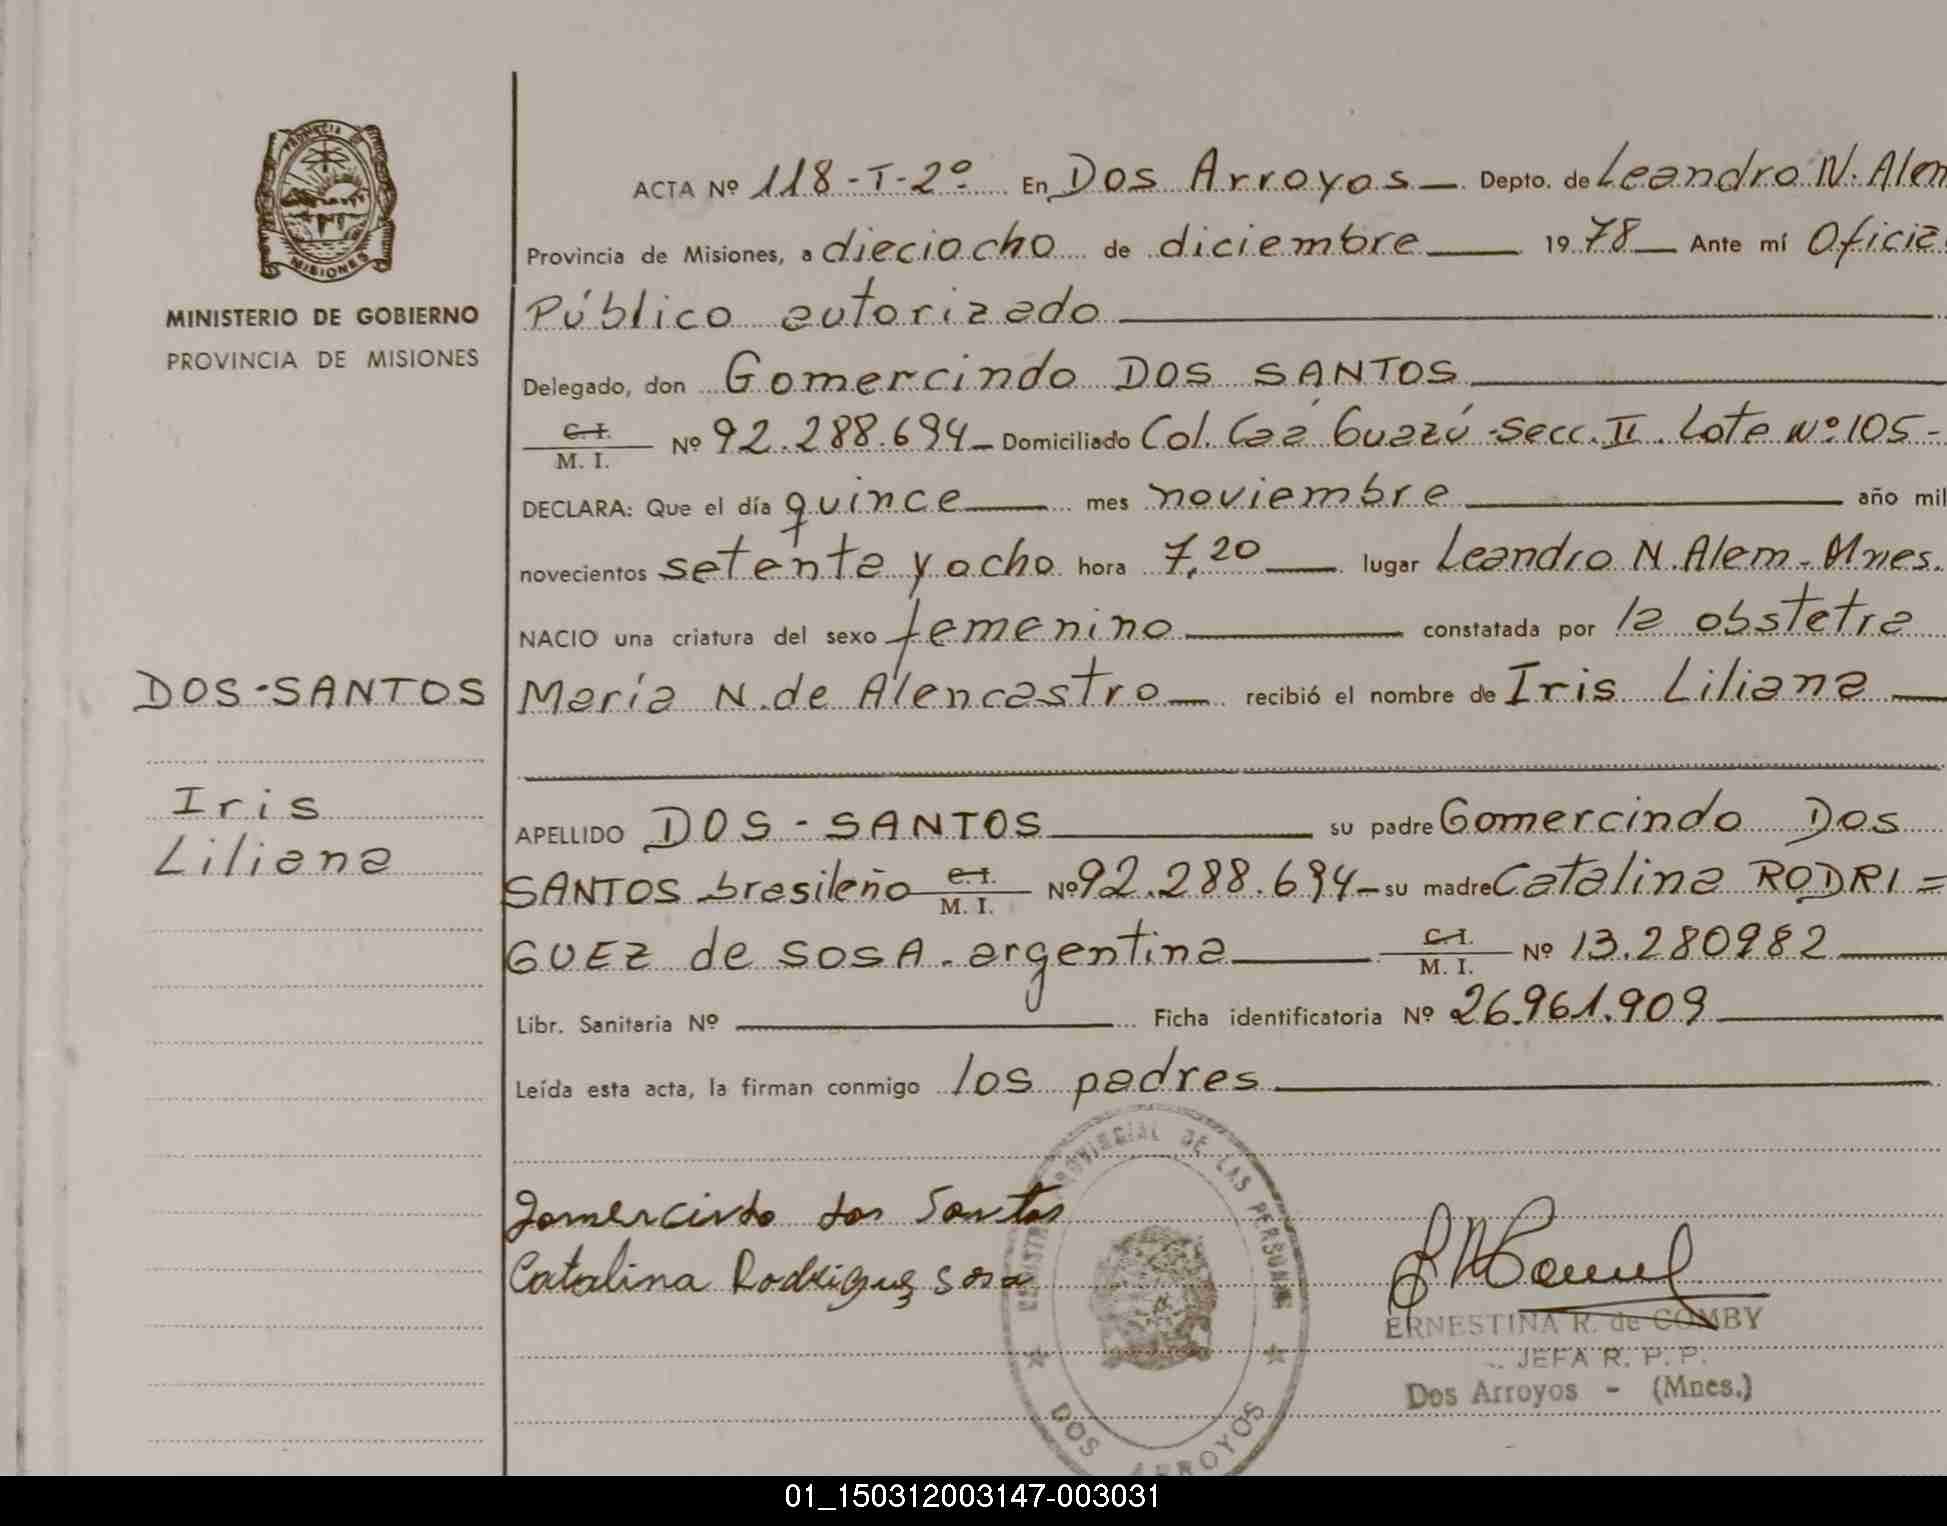 PROVINCIA DE
MISIONES
MINISTERIO DE GOBIERNO
PROVINCIA DE MISIONES
DOS-SANTOS
Iris
Liliana
ACTA Nº 118-T-2º- En Dos Arroyos Depto. de Leandro N. Alem
Provincia de Misiones, a dieciocho de diciembre 1978 Ante mí Oficial
Público autorizado
Delegado, don Gomercindo DOS SANTOS
C.I. M. I. Nº 92.288.694 Domiciliado Col. Caá Guazú-Secc. II. Lote Nº 105-
DECLARA: Que el día quince mes noviembre año mil
novecientos setenta y ocho hora 7,20 lugar Leandro N. Alem-Mnes.
NACIO una criatura del sexo femenino constatada por la obstetra
María N. de Alencastro recibió el nombre de Iris Liliana
APELLIDO DOS-SANTOS su padre Gomercindo Dos
SANTOS brasileño C.I. M. I. Nº 92.288.694 su madre Catalina RODRI=
GUEZ de SOSA. argentina C.I. M. I. Nº 13.280982
Libr. Sanitaria Nº Ficha identificatoria Nº 26.961.909
Leída esta acta, la firman conmigo los padres
Gomercindo dos Santos
Catalina Rodriguez Sosa
PROVINCIAL DE LAS PERSONAS
DOS ARROYOS
ERNESTINA R. de COMBY
JEFA R. P. P.
Dos Arroyos - (Mnes.)
01_150312003147-003031